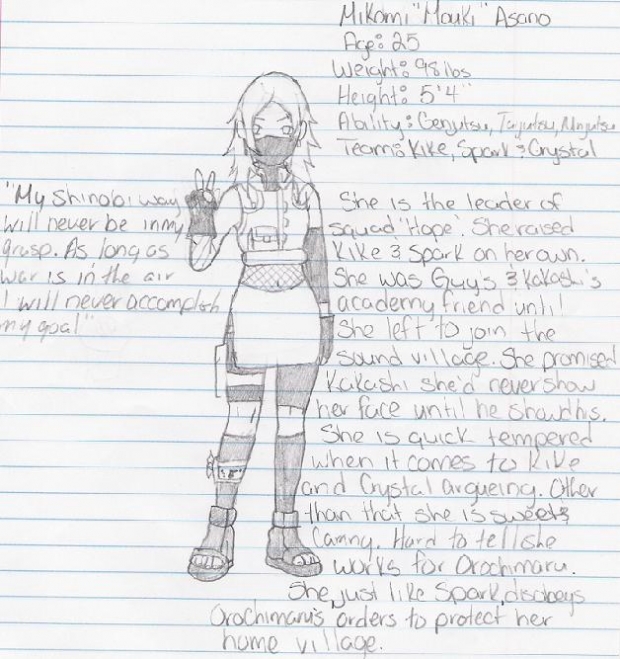 Mikomi "Mouki" Asano
Age: 25
Weight: 98 lbs
Height: 5'4"
Ability: Genjutsu, Taijutsu, Ninjutsu
Team: Kike, Spark & Crystal
"My Shinobi way
will never be in my
grasp. As long as
war is in the air
I will never accomplish
my goal"
She is the leader of
squad "Hope". She raised
Kike & Spark on her own.
She was Guy's & Kakashi's
academy friend until
She left to join the
Sound village. She promised
Kakashi she'd never show
her face until he showd his.
She is quick tempered
when it comes to Kike
and Crystal argueing. Other
than that she is sweet &
Hard to tell she
works for Orochimaru.
She, just like Spark, disobeys
Orochimaru's orders to protect her
home village.